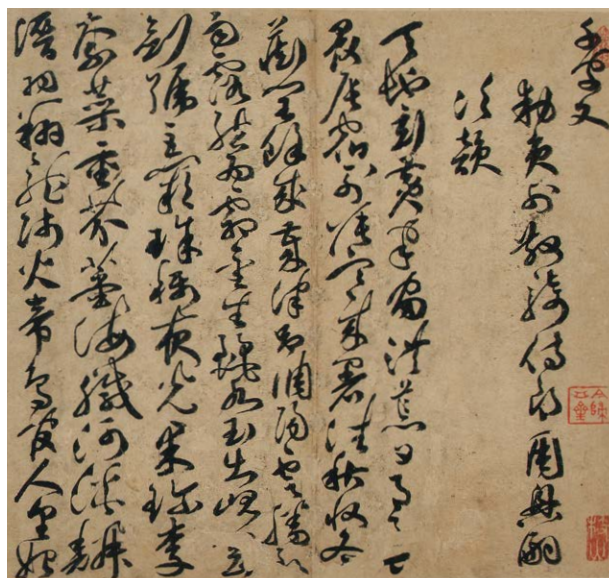 千字文
勅員外散騎侍郎周興嗣
次韻
天地玄黃宇宙洪荒日月盈
昃辰宿列張寒來暑往秋收冬
藏閏餘成歲律召調陽雲騰致
雨露結為霜金生麗水玉出崐崗
劍號巨闕珠稱夜光果珍李
柰菜重芥薑海鹹河淡鱗
潛羽翔龍師火帝鳥官人皇始